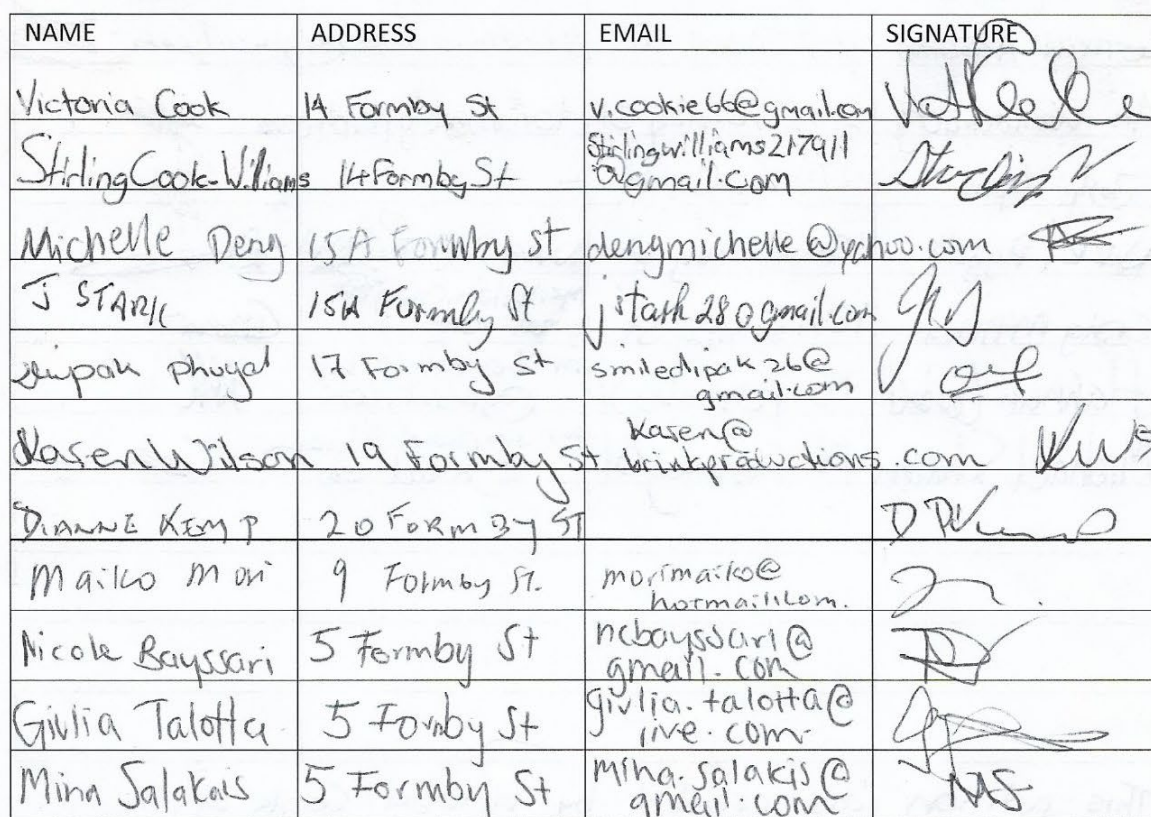 NAME ADDRESS EMAIL SIGNATURE
Victoria Cook 14 Formby St v.cookie66@gmail.com
Stirling Cook-Williams 14 Formby St Stirlingwilliams217911
@gmail.com
Michelle Deng 15A Formby St dengmichelle@yahoo.com
J STARK 15A Formby St jstark28@gmail.com
phuyal 17 Formby St smiledipak26@
gmail.com
Karen Wilson 19 Formby St karen@
brinkproductions.com KWS
DIANNE KEMP 20 FORMBY ST
Maiko Mori 9 Formby St. morimaiko@
hotmail.com.
Nicole Bayssari 5 Formby St ncbayssari@
gmail.com
Giulia Talotta 5 Formby St giulia.talotta@
live.com
Mina Salakais 5 Formby St Mina.Salakis@
gmail.com